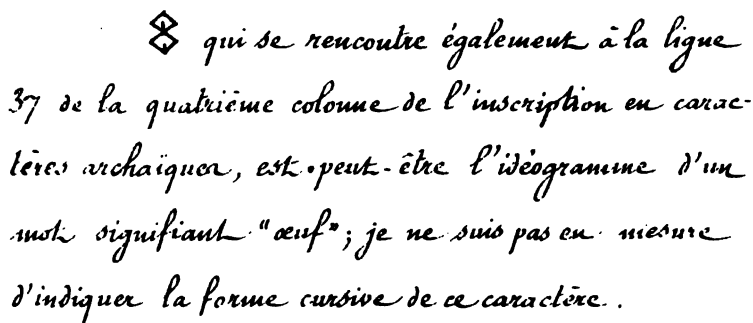 qui se rencontre également à la ligne
37 de la quatrième colonne de l'inscription en carac-
tères archaïques, est peut-être l'idéogramme d'un
mot signifiant "œuf"; je ne suis pas en mesure
d'indiquer la forme cursive de ce caractère.